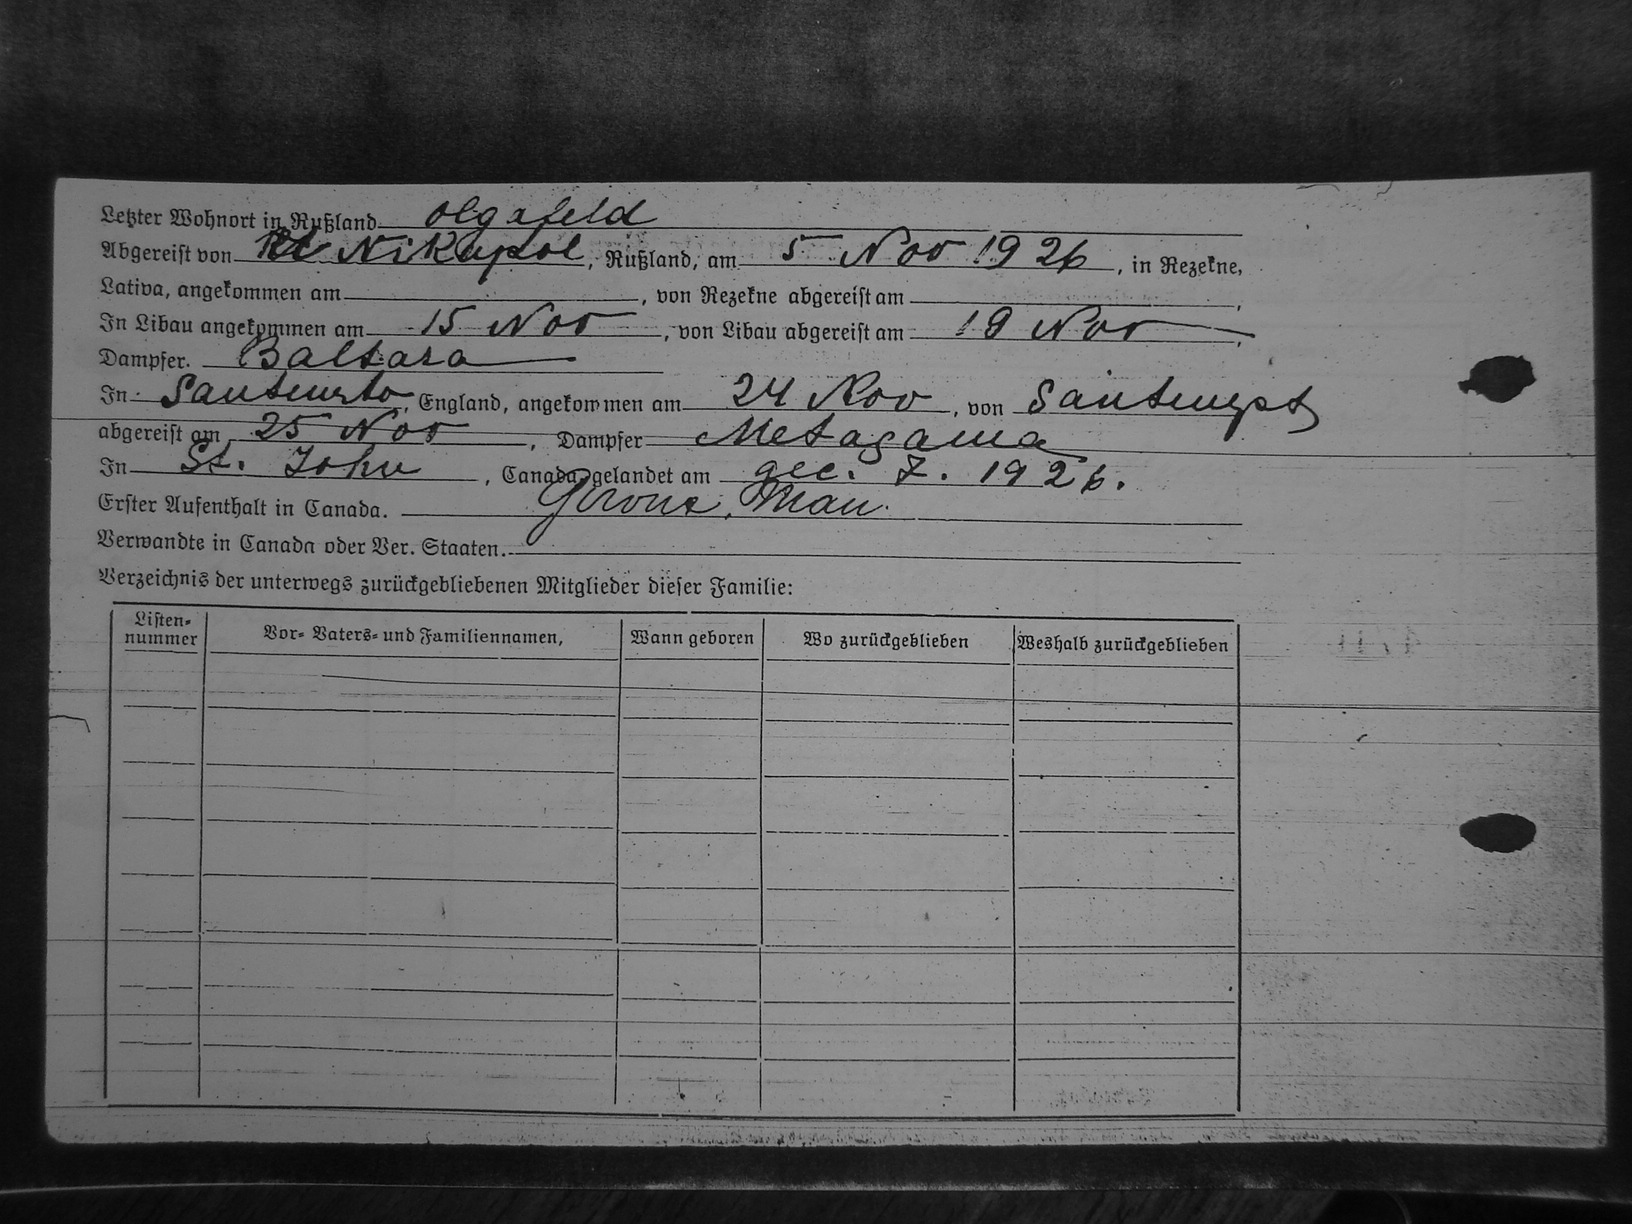 Letzter Wohnort in Rußland Olgafeld
Abgereist von Nikapol, Rußland, am 5 Nov 1926, in Rezekne,
Lativa, angekommen am , von Rezekne abgereist am ,
In Libau angekommen am 15 Nov , von Libau abgereist am 19 Nov ,
Dampfer. Baltara
In , England, angekommen am 24 Nov , von
abgereist am 25 Nov , Dampfer Metagama
In St. John , Canada gelandet am 7. 1926.
Erster Aufenthalt in Canada. Man.
Verwandte in Canada oder Ver. Staaten.
Verzeichnis der unterwegs zurückgebliebenen Mitglieder dieser Familie:
Listen-nummer Vor- Vaters- und Familiennamen, Wann geboren Wo zurückgeblieben Weshalb zurückgeblieben